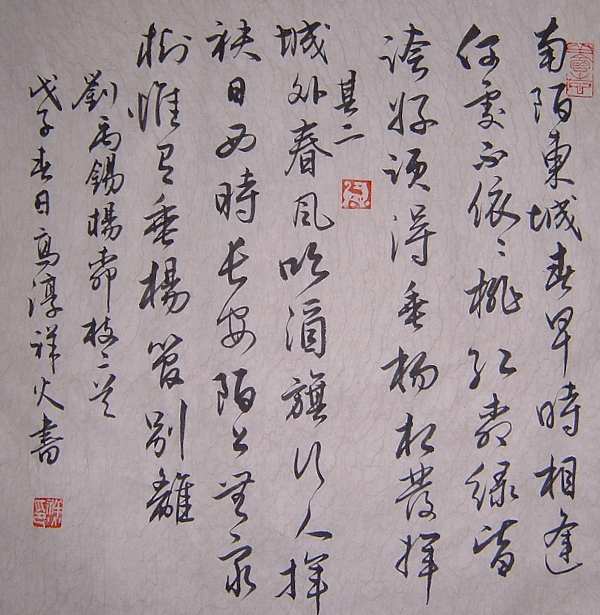 南陌東城春早時相逢
何處不依〻桃紅柳綠皆
誇好須得垂杨相發揮
其二
城外春風吹酒旗行人揮
袂日西時長安陌上無窮
樹惟有垂楊管別離
劉禹錫楊柳枝二首
戊子春日高淳祥火書